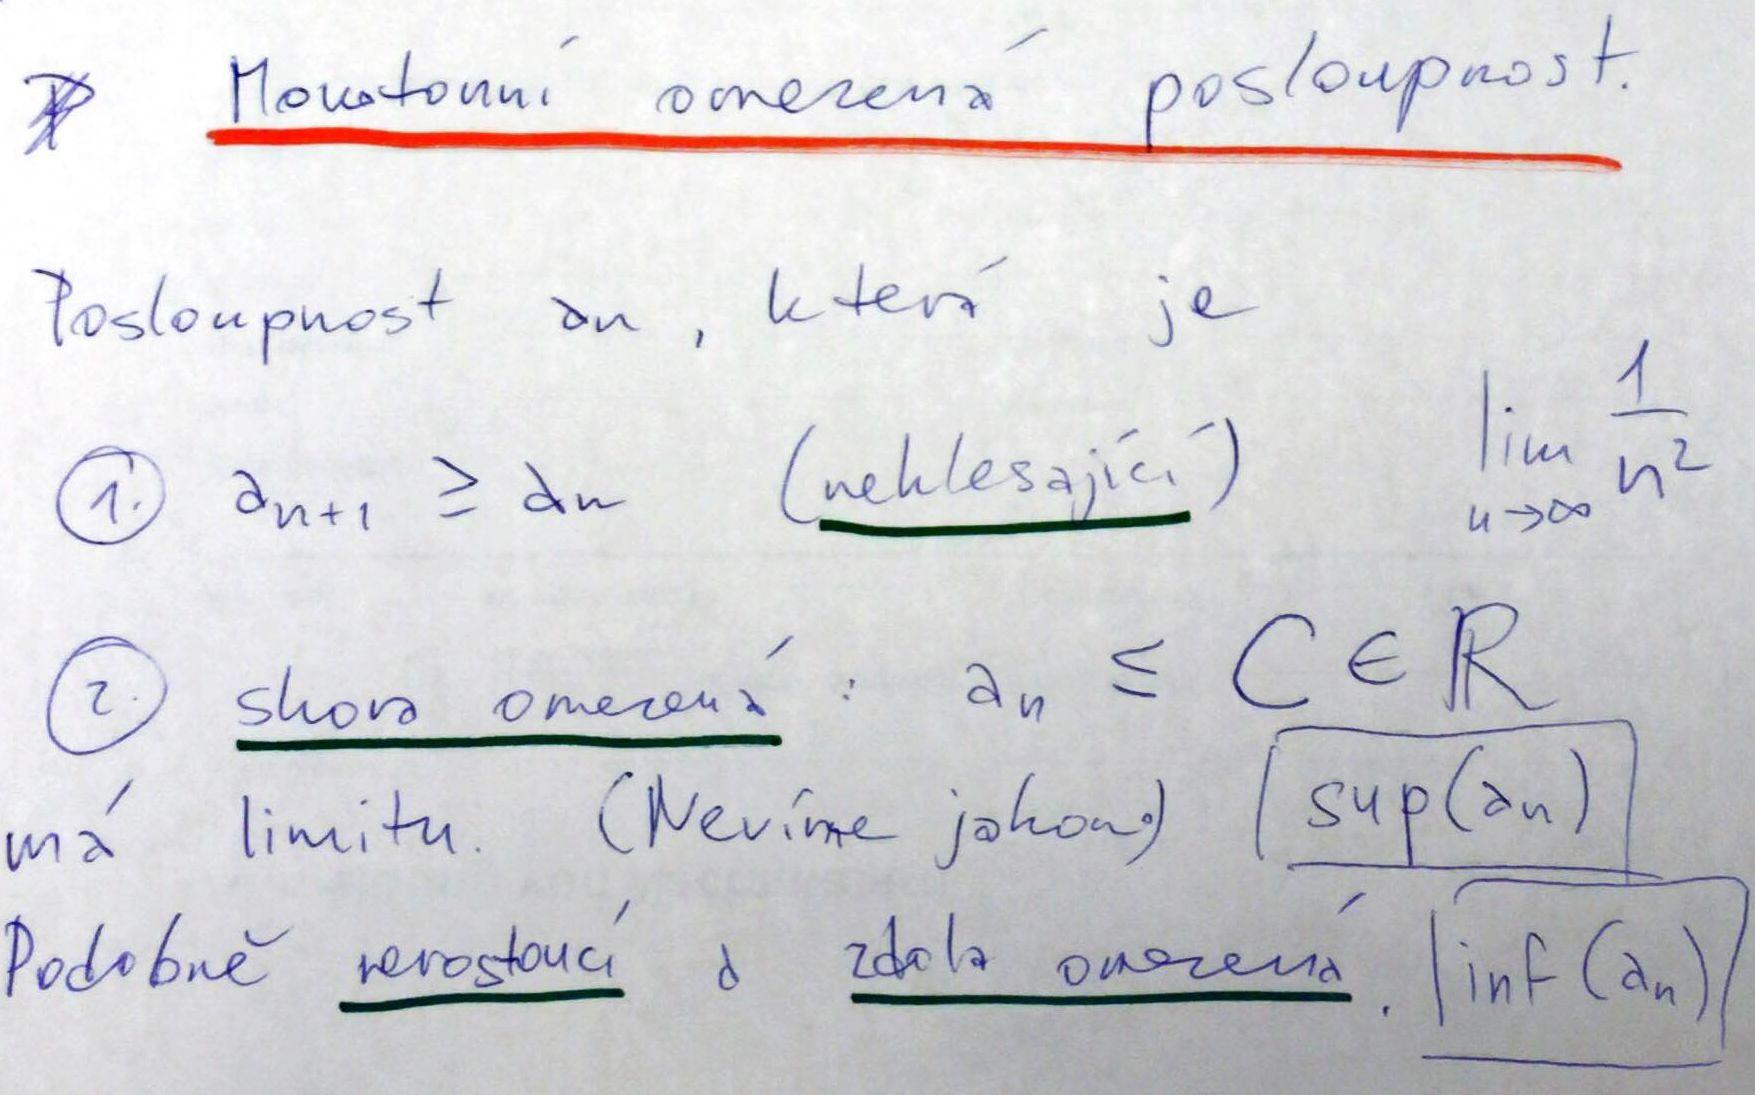 Monotonní omezená posloupnost.
Posloupnost an, která je
1. an+1 ≥ an (neklesající)
lim n→∞ 1/n²
2. shora omezená: an ≤ C ∈ ℝ
má limitu. (Nevíme jakou) sup(an)
Podobně nerostoucí a zdola omezená. inf(an)